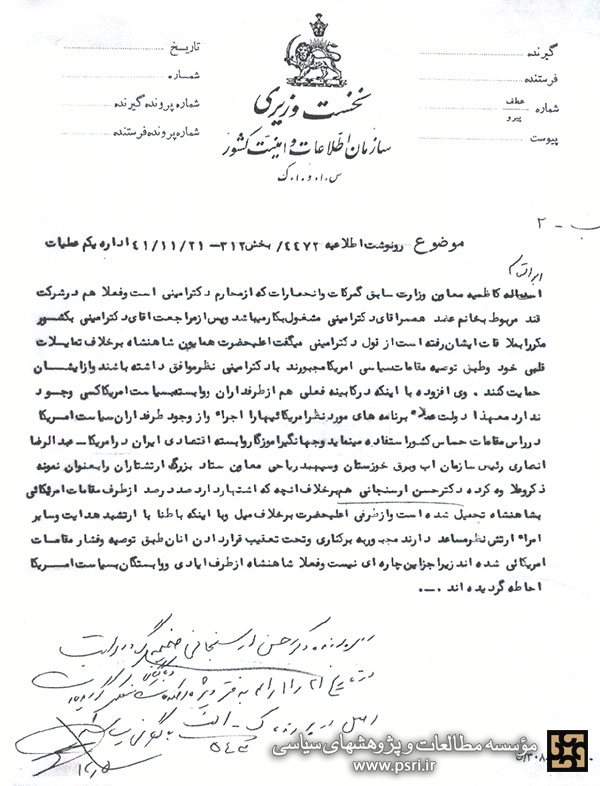 نخست وزیری
سازمان اطلاعات و امنیت کشور
س.ا.و.ا.ک
گیرنده
فرستنده
شماره عطف پیرو
پیوست
تاریخ
شماره
شماره پرونده گیرنده
شماره پرونده فرستنده
موضوع رونوشت اطلاعیه ۴۴۷۲/ بخش ۳۱۲ – ۴۱/۱۱/۲۱ اداره یکم عملیات
اسداله کاظمیه معاون وزارت سابق گمرکات و انحصارات که از محارم دکتر امینی است و فعلا هم در شرکت
قند مربوط بخانم عضد همسر اقای دکتر امینی مشغول بکار میباشد و پس از مراجعت اقای دکتر امینی بکشور
مکررا بملاقات ایشان رفته است از قول دکتر امینی میگفت اعلیحضرت همایون شاهنشاه برخلاف تمایلات
قلبی خود و طبق توصیه مقامات سیاسی امریکا مجبورند با دکتر امینی نظر موافق داشته باشند و از ایشان
حمایت کنند . وی افزوده با اینکه در کابینه فعلی هم از طرفداران و وابسته بسیاست امریکا کسی وجود
ندارد معهذا دولت عملا" برنامه های مورد نظر امریکائیها را اجرا و از وجود طرفداران سیاست امریکا
در راس مقامات حساس کشور استفاده مینماید و جهانگیر اموزگار وابسته اقتصادی ایران در امریکا – عبدالرضا
انصاری رئیس سازمان اب و برق خوزستان و سپهبد ریاحی معاون ستاد بزرگ ارتشتاران را بعنوان نمونه
ذکر و علاوه کرده دکتر حسن ارسنجانی هم برخلاف انچه که اشتهار دارد صد در صد از طرف مقامات امریکائی
بشاهنشاه تحمیل شده است و از طرفی اعلیحضرت برخلاف میل و با اینکه باطنا با ارتشبد هدایت و سایر
امراء ارتش نظر مساعد دارند مجبور به برکناری و تحت تعقیب قرار دادن انان طبق توصیه و فشار مقامات
امریکائی شده اند زیرا جز این چاره ای نیست و فعلا شاهنشاه از طرف ایادی و وابستگان بسیاست امریکا
احاطه گردیده اند .
در پرونده دکتر حسن ارسنجانی
اصل در پرونده ک – الف
مؤسسه مطالعات و پژوهشهای سیاسی
www.psri.ir